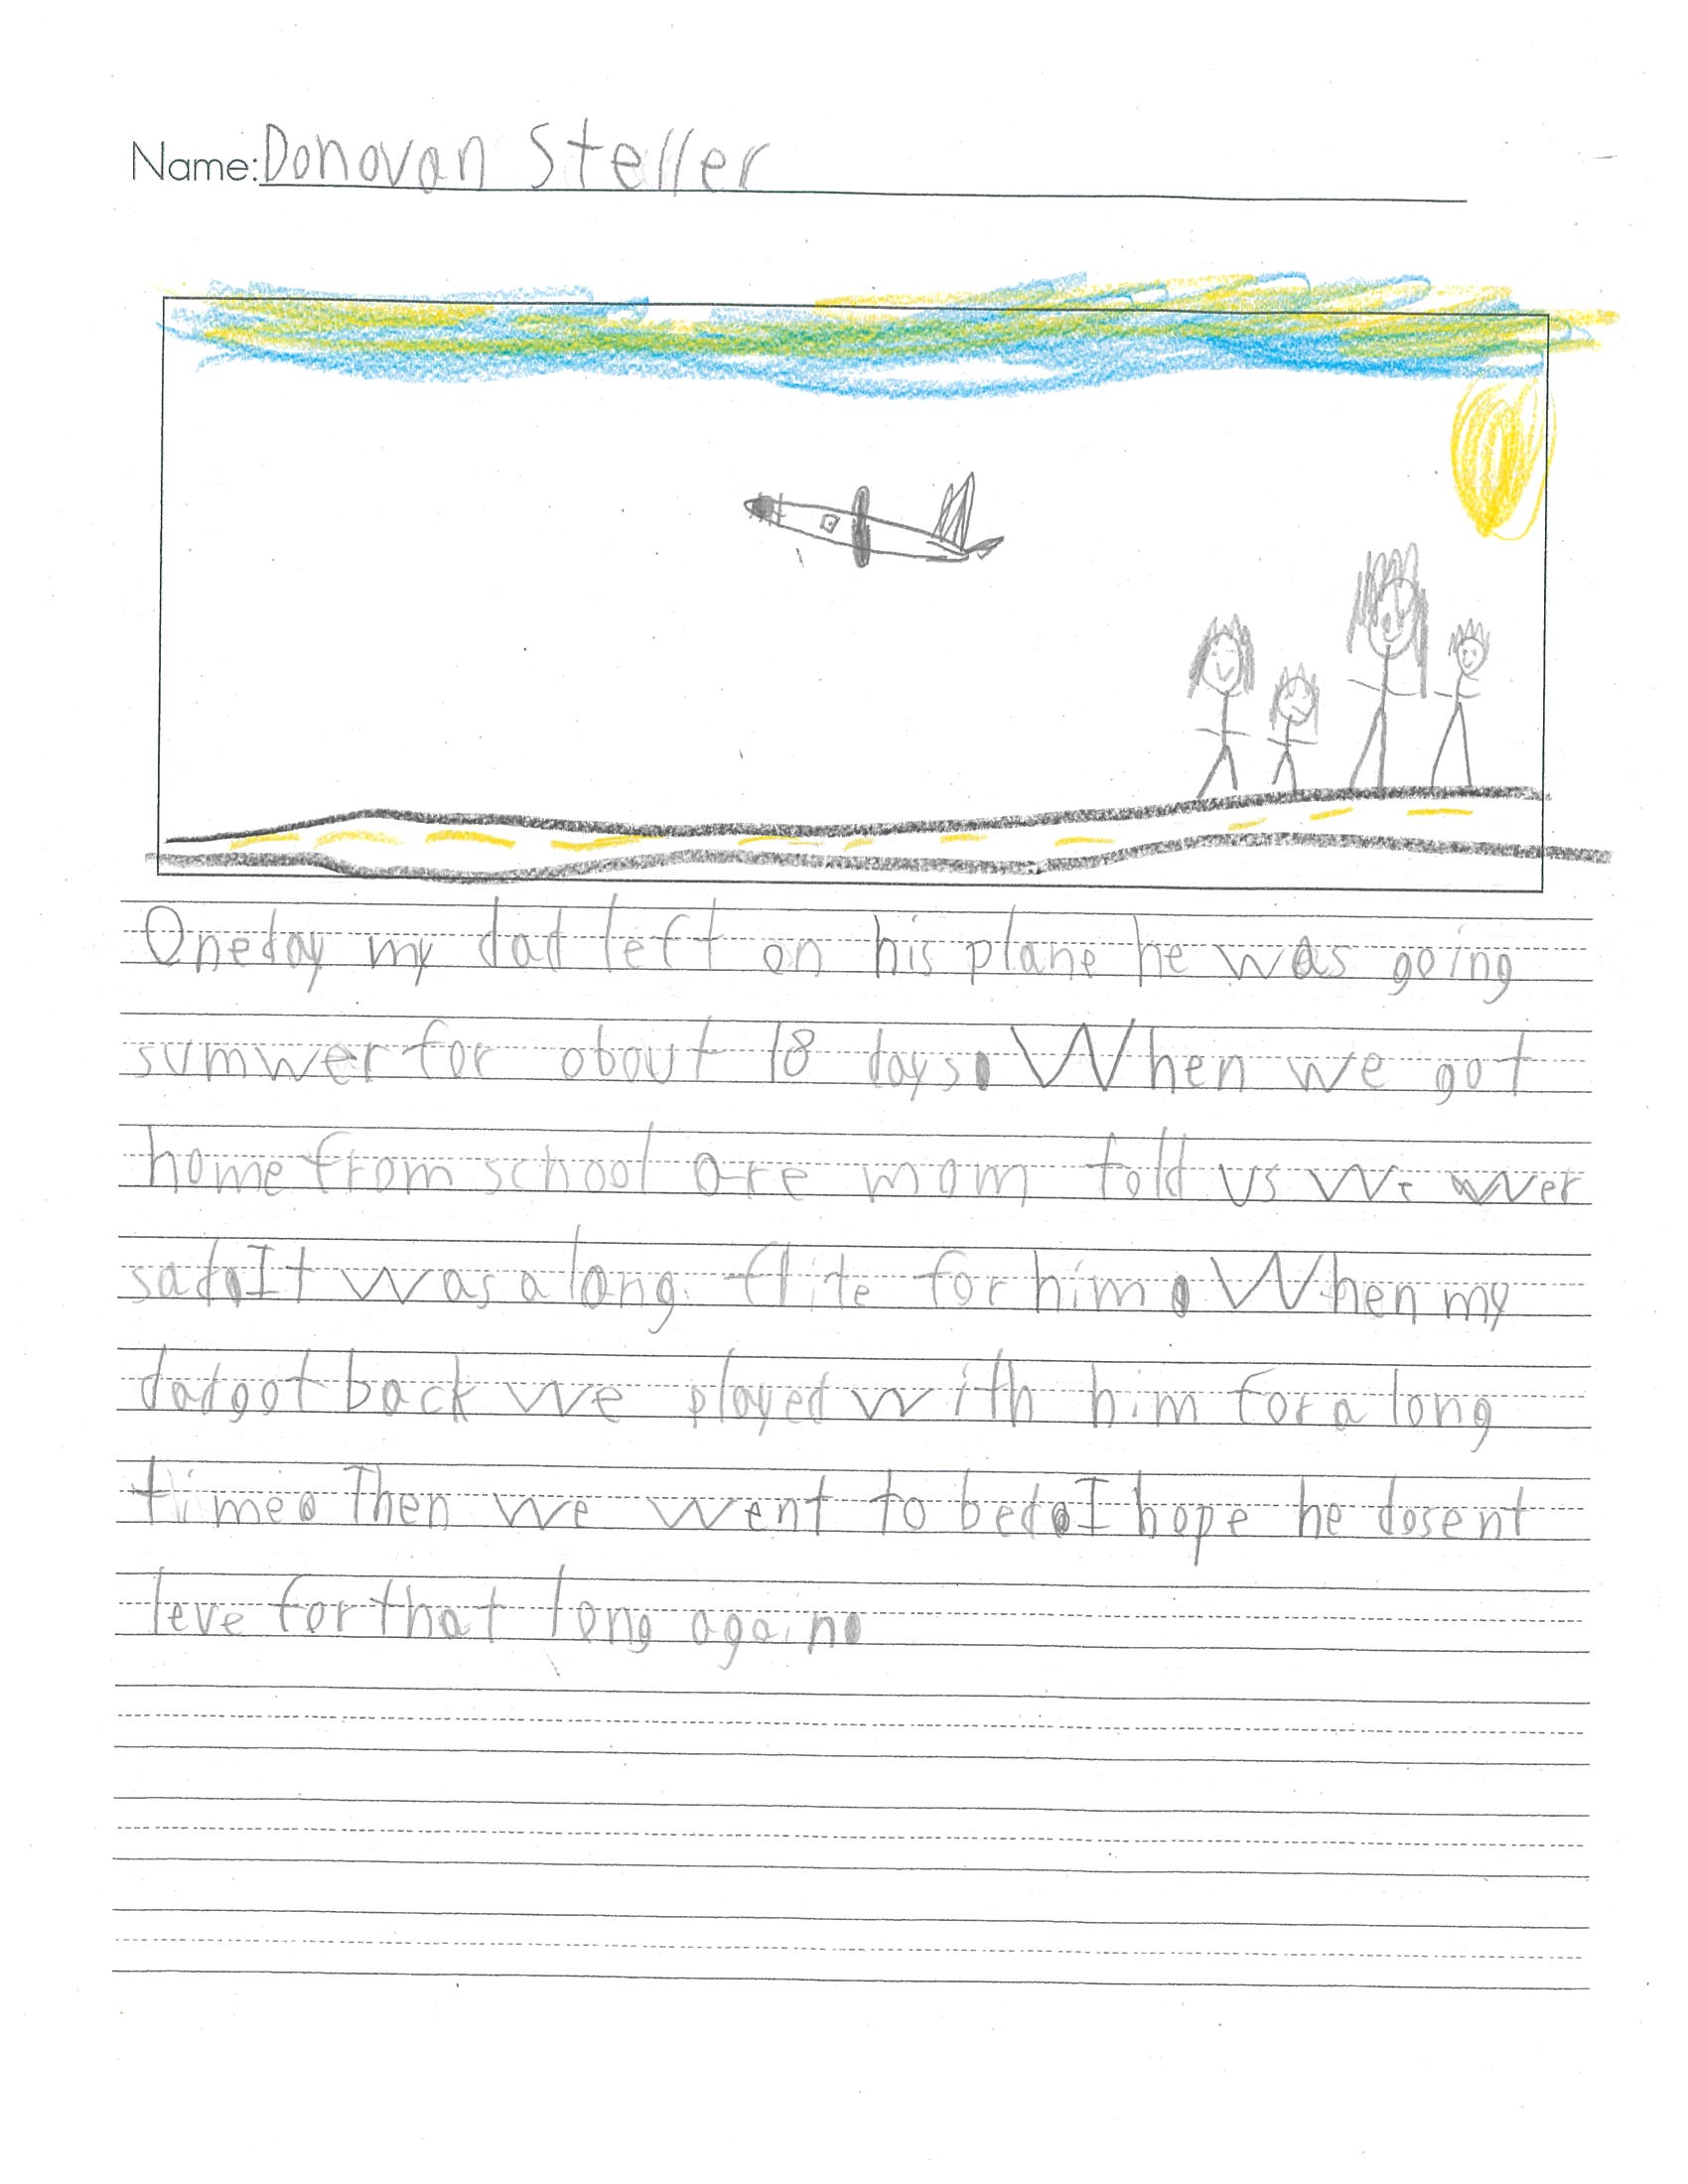 Name: Donovan Steller
Oneday my dad left on his plane he was going
sumwer for about 18 days. When we got
home from school are mom told us we wer
sad. It was a long flite for him. When my
dad got back we played with him for a long
time. Then we went to bed. I hope he dosent
leve for that long again.